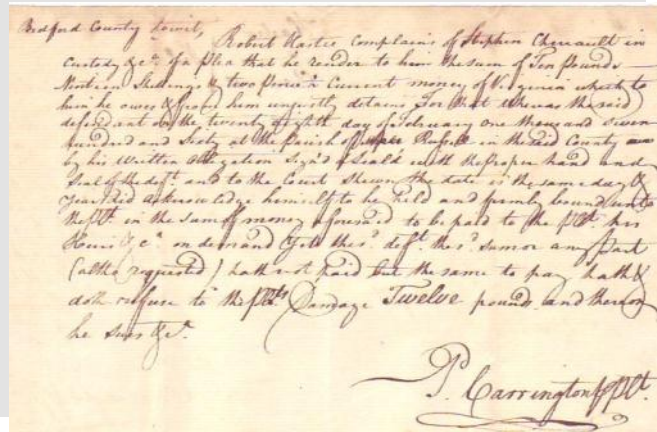 Bedford County towit,
Robert Hastie Complains of Stephen Cheuault in
Custody &c. of a Plea that he render to him the sum of Ten Pounds
Nineteen Shillings & two Pence Current money of Virginia which to
him he owes & from him unjustly detains For that Whereas the said
defendant on the twenty Eighth day of February one thousand seven
hundred and Sixty at the Parish of Russel in the said County
by his Written Obligation Sign'd & Seal'd with the proper hand and
Seal of the deft. and to the Court Shewn the date is the same day &
Year did acknowledge himself to be held and firmly bound unto
the Plt. in the sum of money aforesd. to be paid to the Plt. his
Heirs &c. on demand Yet the sd. deft. the sd. sum or any Part
(altho requested) hath not paid but the same to pay hath &
doth refuse to the Plts. Damage Twelve pounds and thereon
he sues &c.
P. Carrington Plt.